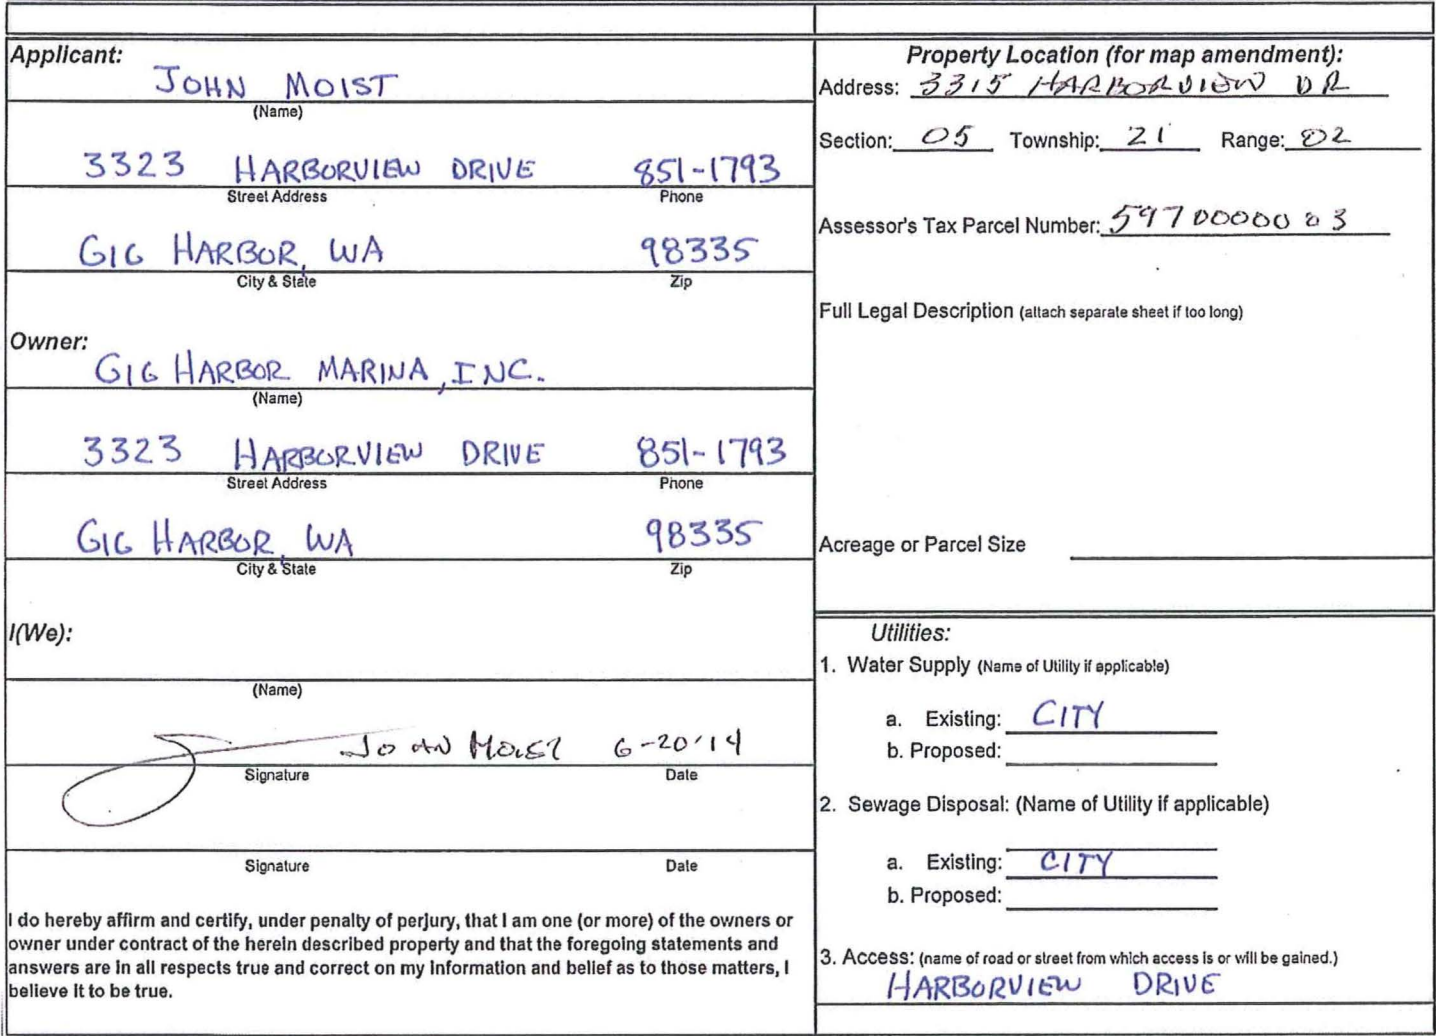 Applicant:
JOHN MOIST
(Name)
3323 HARBORVIEW DRIVE 851-1793
Street Address Phone
GIG HARBOR, WA 98335
City & State Zip
Owner:
GIG HARBOR MARINA, INC.
(Name)
3323 HARBORVIEW DRIVE 851-1793
Street Address Phone
GIG HARBOR, WA 98335
City & State Zip
I(We):
(Name)
JOHN MOIST 6-20-14
Signature Date
Signature Date
I do hereby affirm and certify, under penalty of perjury, that I am one (or more) of the owners or
owner under contract of the herein described property and that the foregoing statements and
answers are in all respects true and correct on my information and belief as to those matters, I
believe it to be true.
Property Location (for map amendment):
Address: 3315 HARBORVIEW DR
Section: 05 Township: 21 Range: 02
Assessor's Tax Parcel Number: 5970000003
Full Legal Description (attach separate sheet if too long)
Acreage or Parcel Size
Utilities:
1. Water Supply (Name of Utility if applicable)
a. Existing: CITY
b. Proposed:
2. Sewage Disposal: (Name of Utility if applicable)
a. Existing: CITY
b. Proposed:
3. Access: (name of road or street from which access is or will be gained.)
HARBORVIEW DRIVE